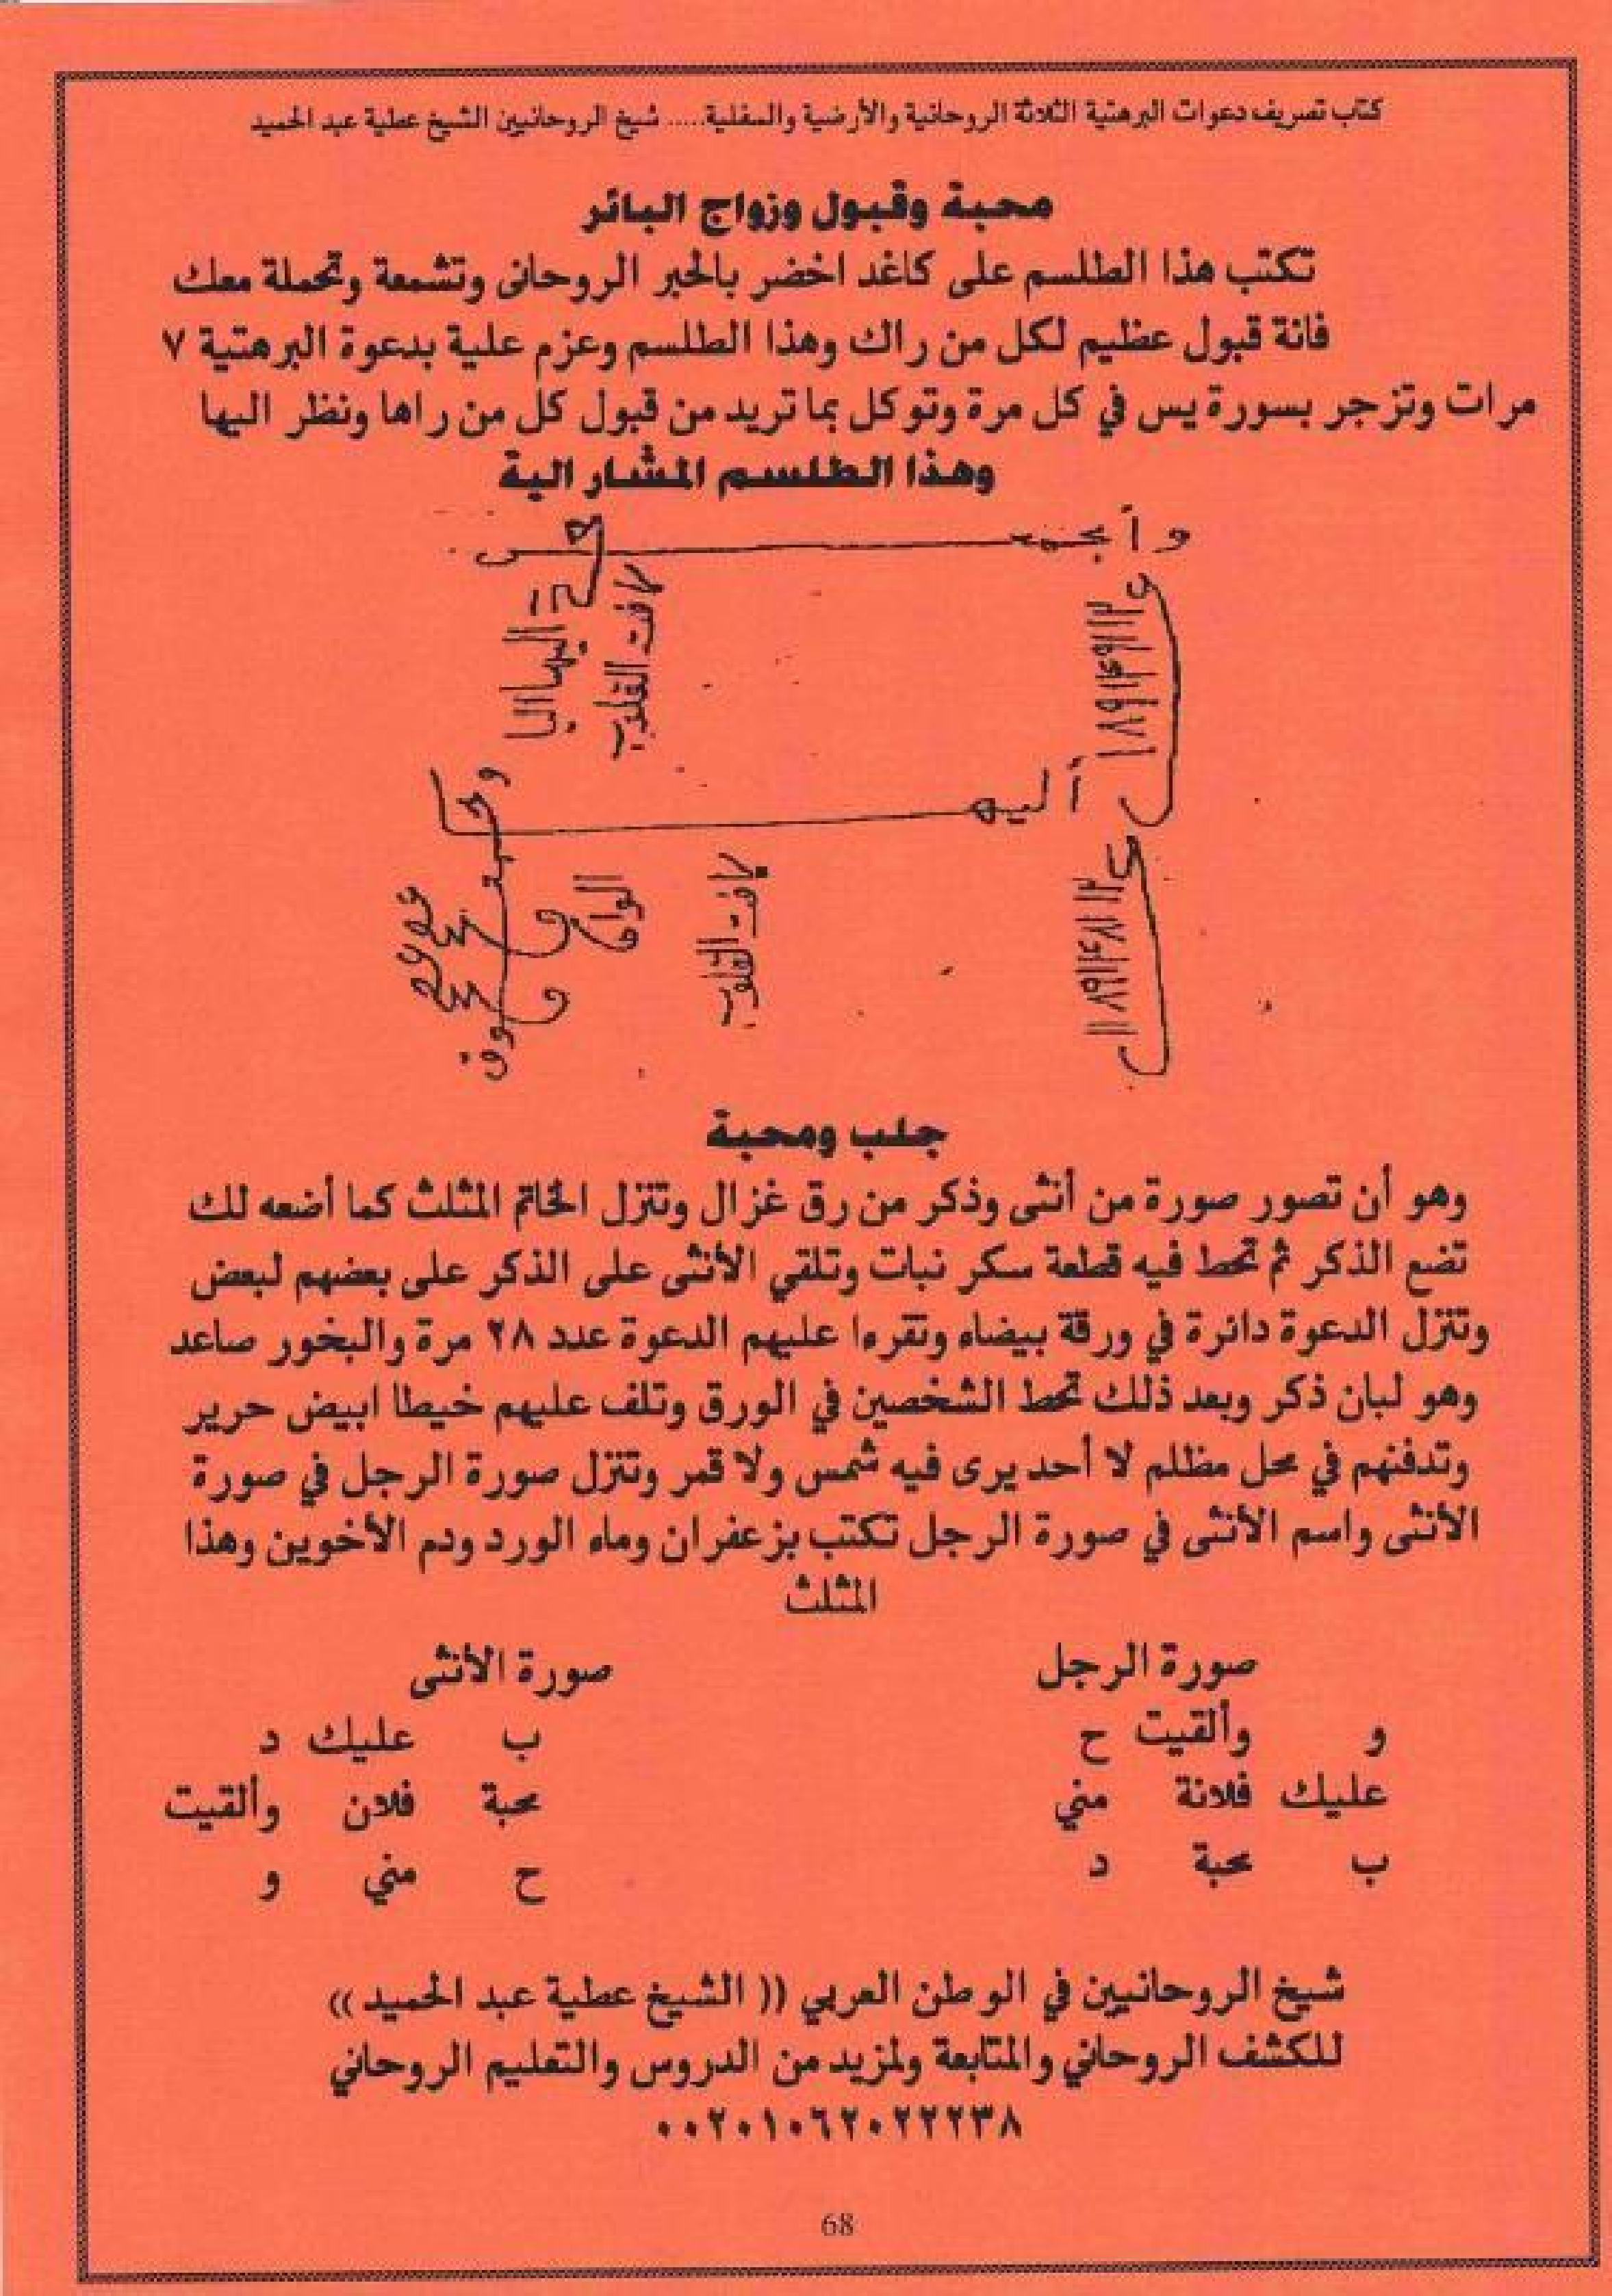 كتاب تصريف دعوات البرهتية الثلاثة الروحانية والأرضية والسفلية..... شيخ الروحانيين الشيخ عطية عبد الحميد
محبة وقبول وزواج البائر
تكتب هذا الطلسم على كاغد اخضر بالحبر الروحانى وتشمعة وتحملة معك
فانة قبول عظيم لكل من راك وهذا الطلسم وعزم علية بدعوة البرهتية ٧
مرات وتزجر بسورة يس في كل مرة وتوكل بما تريد من قبول كل من راها ونظر اليها
وهذا الطلسم المشار الية
القلوب
القلوب
جلب ومحبة
وهو أن تصور صورة من أنثى وذكر من رق غزال وتنزل الخاتم المثلث كما أضعه لك
تضع الذكر ثم تحط فيه قطعة سكر نبات وتلقي الأنثى على الذكر على بعضهم لبعض
وتنزل الدعوة دائرة في ورقة بيضاء وتقرءا عليهم الدعوة عدد ٢٨ مرة والبخور صاعد
وهو لبان ذكر وبعد ذلك تحط الشخصين في الورق وتلف عليهم خيطا ابيض حرير
وتدفنهم في محل مظلم لا أحد يرى فيه شمس ولا قمر وتنزل صورة الرجل في صورة
الأنثى واسم الأنثى في صورة الرجل تكتب بزعفران وماء الورد ودم الأخوين وهذا
المثلث
صورة الرجل
و وألقيت ح
عليك فلانة مني
ب محبة د
صورة الأنثى
ب عليك د
محبة فلان وألقيت
ح مني و
شيخ الروحانيين في الوطن العربي (( الشيخ عطية عبد الحميد ))
للكشف الروحاني والمتابعة ولمزيد من الدروس والتعليم الروحاني
٠٠٢٠١٠٦٢٠٢٢٢٣٨
68